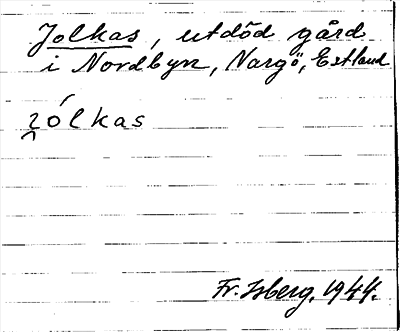 Jolkas, utdöd gård
i Nordbyn, Nargö, Estland
i̯ólkas
Fr. Isberg. 1944.